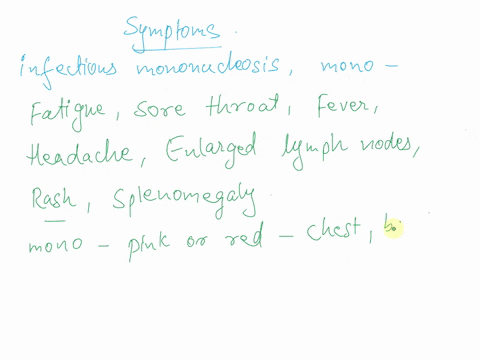 Symptoms.
infectious mononucleosis, mono -
Fatigue, sore throat, Fever,
Headache, Enlarged lymph nodes,
Rash, Splenomegaly
mono - pink or red - chest,